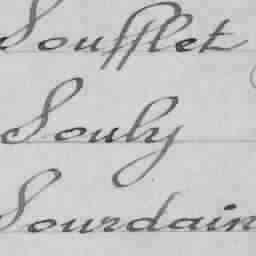 Soufflet
Souly
Sourdain